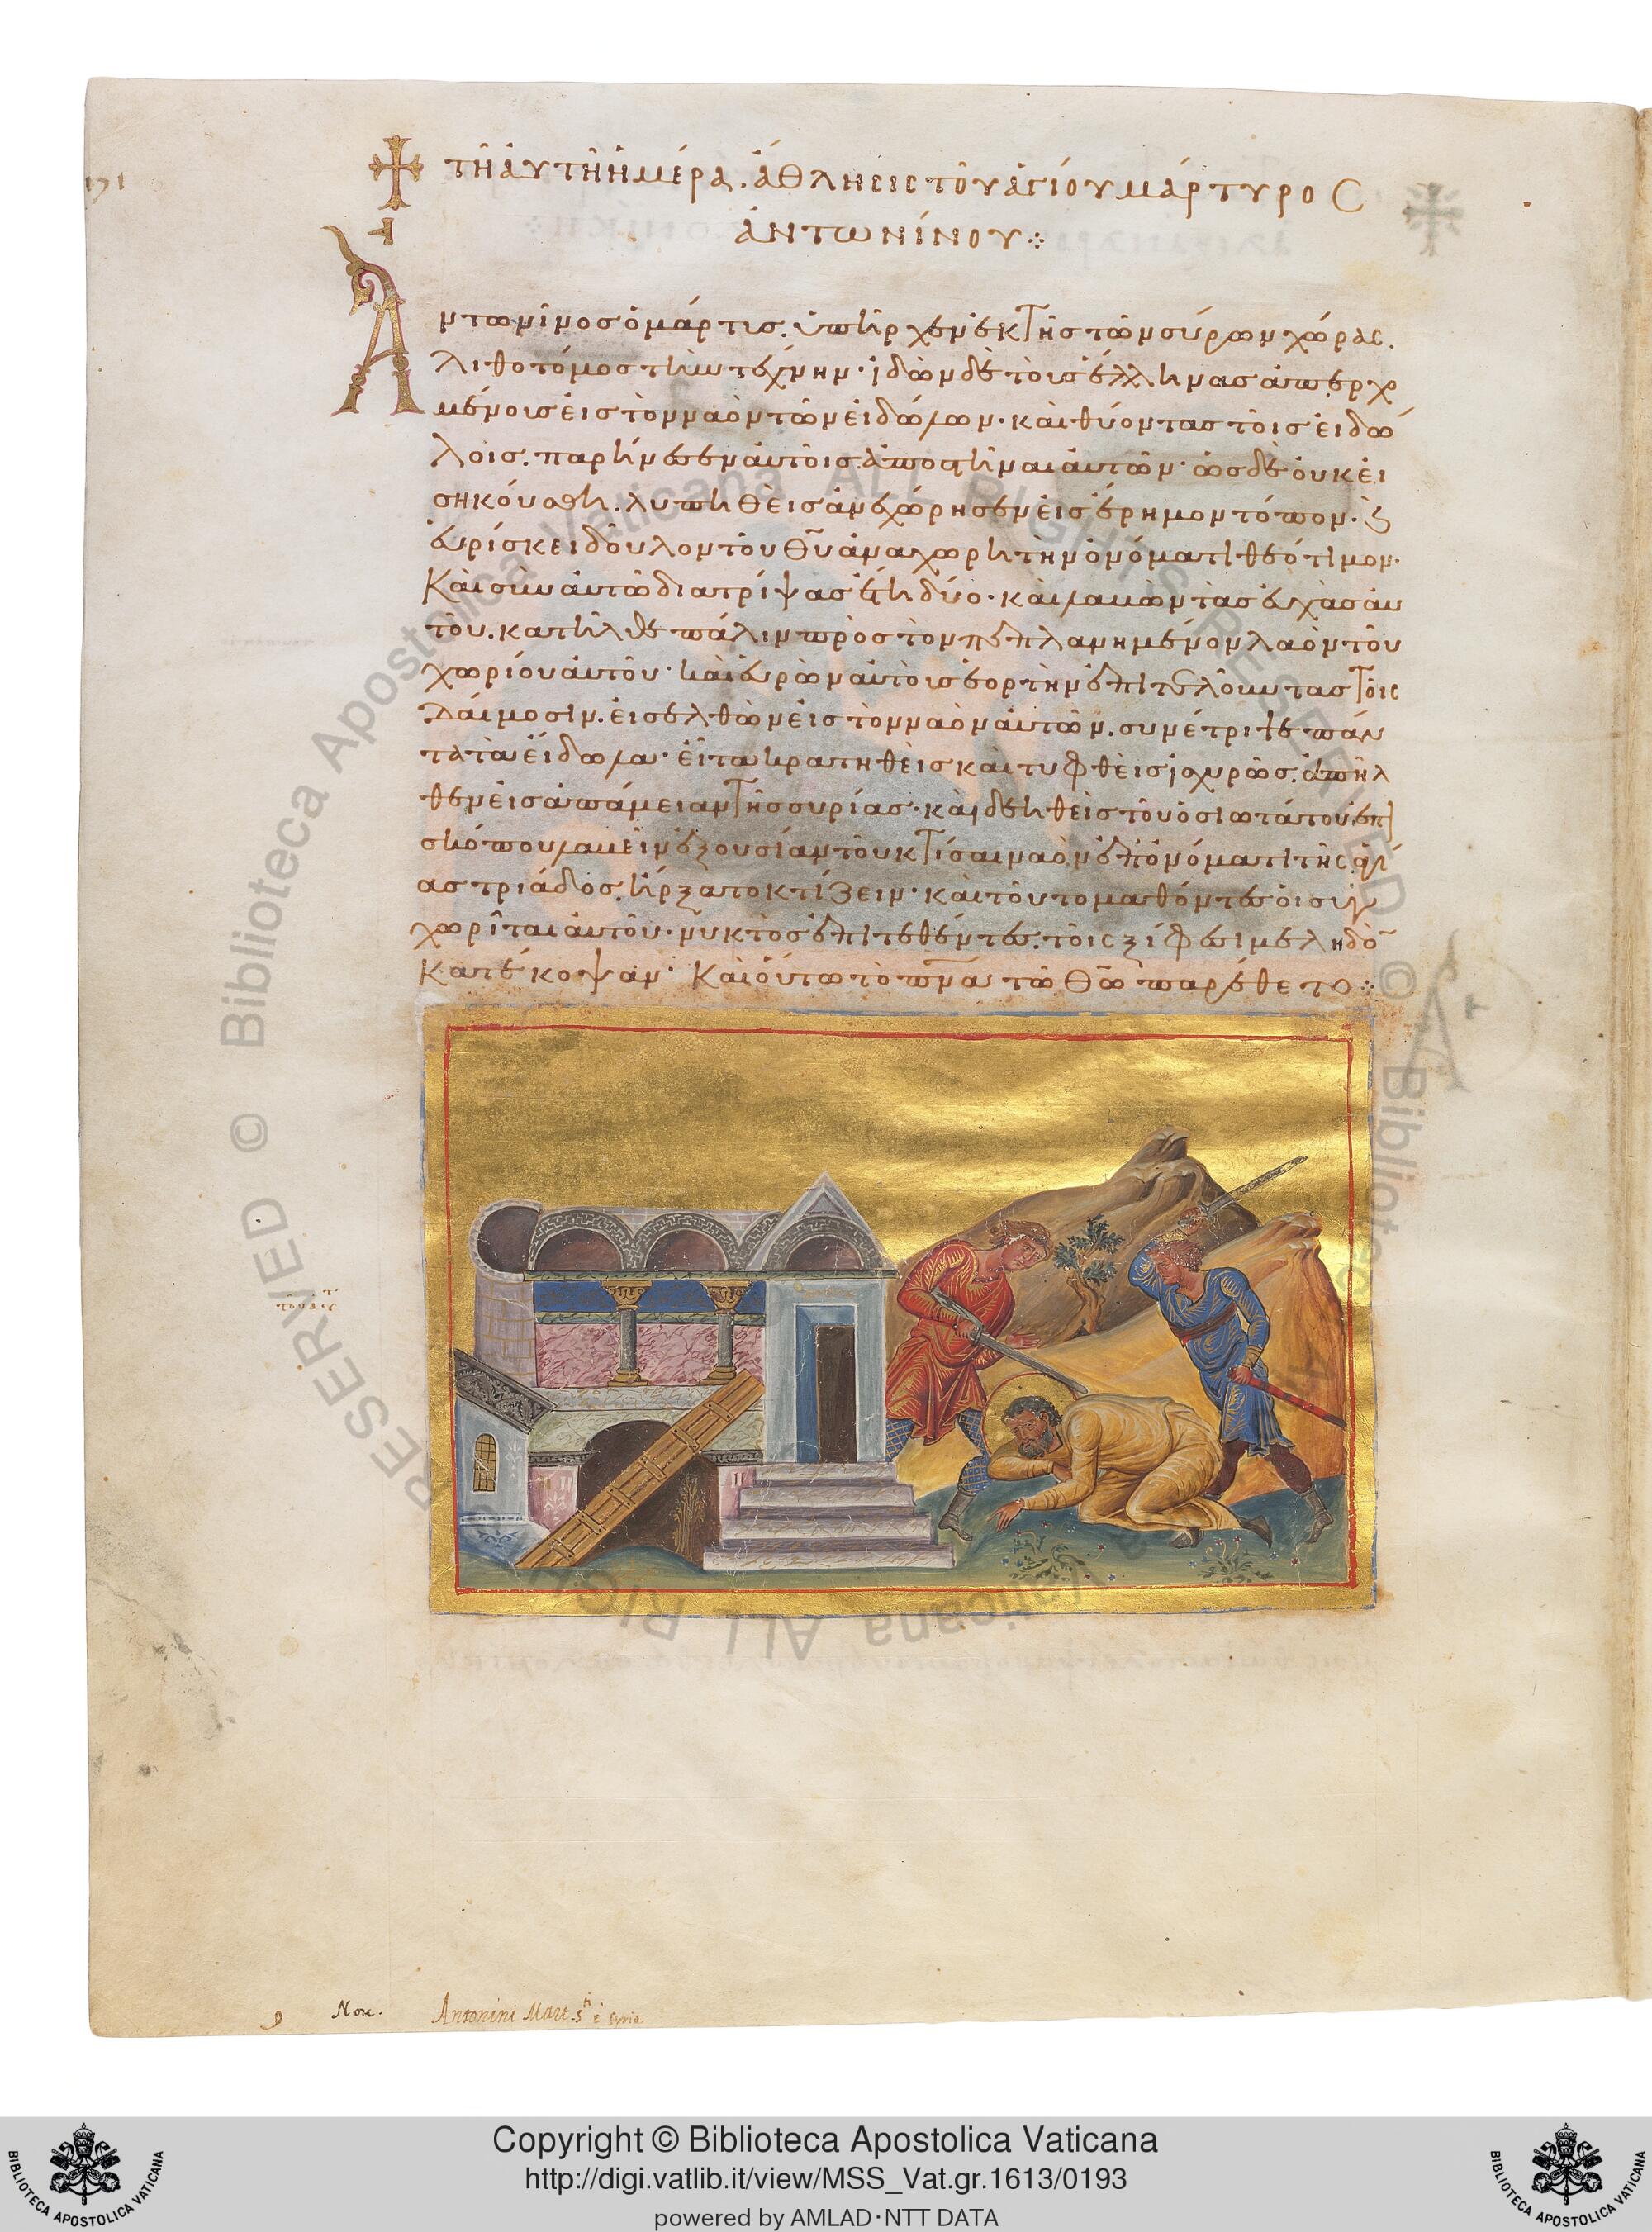 171
τῆ ἀυτῆ ἡμέρα. ἄθλησις τοῦ ἁγίου μάρτυρος
ἀντωνίνου ⁘
Ἀντωνῖνος ὁ μάρτις. ὑπῆρχεν ἐκ τῆς τῶν σύρων χώρας.
λιθοτόμος τὴν τέχνην· ἰδὼν δὲ τοὺς ἕλληνας ἀπερχο
μένοις εἰς τὸν ναὸν τῶν εἰδώλων. καὶ θύοντας τοῖς εἰδώ
λοις. παρήνεσεν ἀυτοῖς ἀποστῆναι ἀυτῶν· ὡς δὲ ὀυκ ἐι
σηκόυσθη. λυπηθεὶς ἀνεχώρησεν εἰς ἔρημον τόπον. ϗ
ἑυρίσκει δοῦλον τοῦ θῦ ἀναχωρητὴν ὀνόματι θεότιμον.
Και σὺν ἀυτῶ διατρίψας ἔτη δύο. καὶ λαβὼν τὰς ἐυχὰς ἀυ
τοῦ. κατῆλθε πάλιν πρὸς τὸν πεπλανημένον λαὸν τοῦ
χωρίου ἀυτοῦ· καὶ ἑυρὼν ἀυτοὺς ἑορτὴν ἐπιτελοῦντας τοῖς
δαίμοσιν. εἰσελθὼν εἰς τὸν ναὸν ἀυτῶν. συνέτριψε πάν
τα τὰ εἴδωλα· εἶτα κρατηθεὶς καὶ τυφθεὶς ἰσχυρῶς. ἀπῆλ
θεν εἰς ἀπάμειαν τῆς συρίας. καὶ δεηθεὶς τοῦ ὁσιωτάτου ἐπι
σκόπου λαβεῖν ἐξουσίαν τοῦ κτίσαι ναὸν ἐπ ὀνόματι τῆς ἁγί
ας τριάδος. ἤρξατο κτίζειν. καὶ τοῦτο μαθόντες ὁι συγ
χωρῖται ἀυτοῦ. νυκτὸς ἐπιτεθέντες. τοῖς ξίφεσι μεληδὸ
Κατέκοψαν. Και ὅυτω τὸ πνᾶ τῶ θῶ παρέθετο ⁘
Nou. Antonini Mart.
Copyright © Biblioteca Apostolica Vaticana
http://digi.vatlib.it/view/MSS_Vat.gr.1613/0193
powered by AMLAD·NTT DATA
BIBLIOTECA APOSTOLICA VATICANA
BIBLIOTECA APOSTOLICA VATICANA
© Biblioteca Apostolica Vaticana ALL RIGHTS RESERVED © Biblioteca Apostolica Vaticana ALL RIGHTS RESERVED